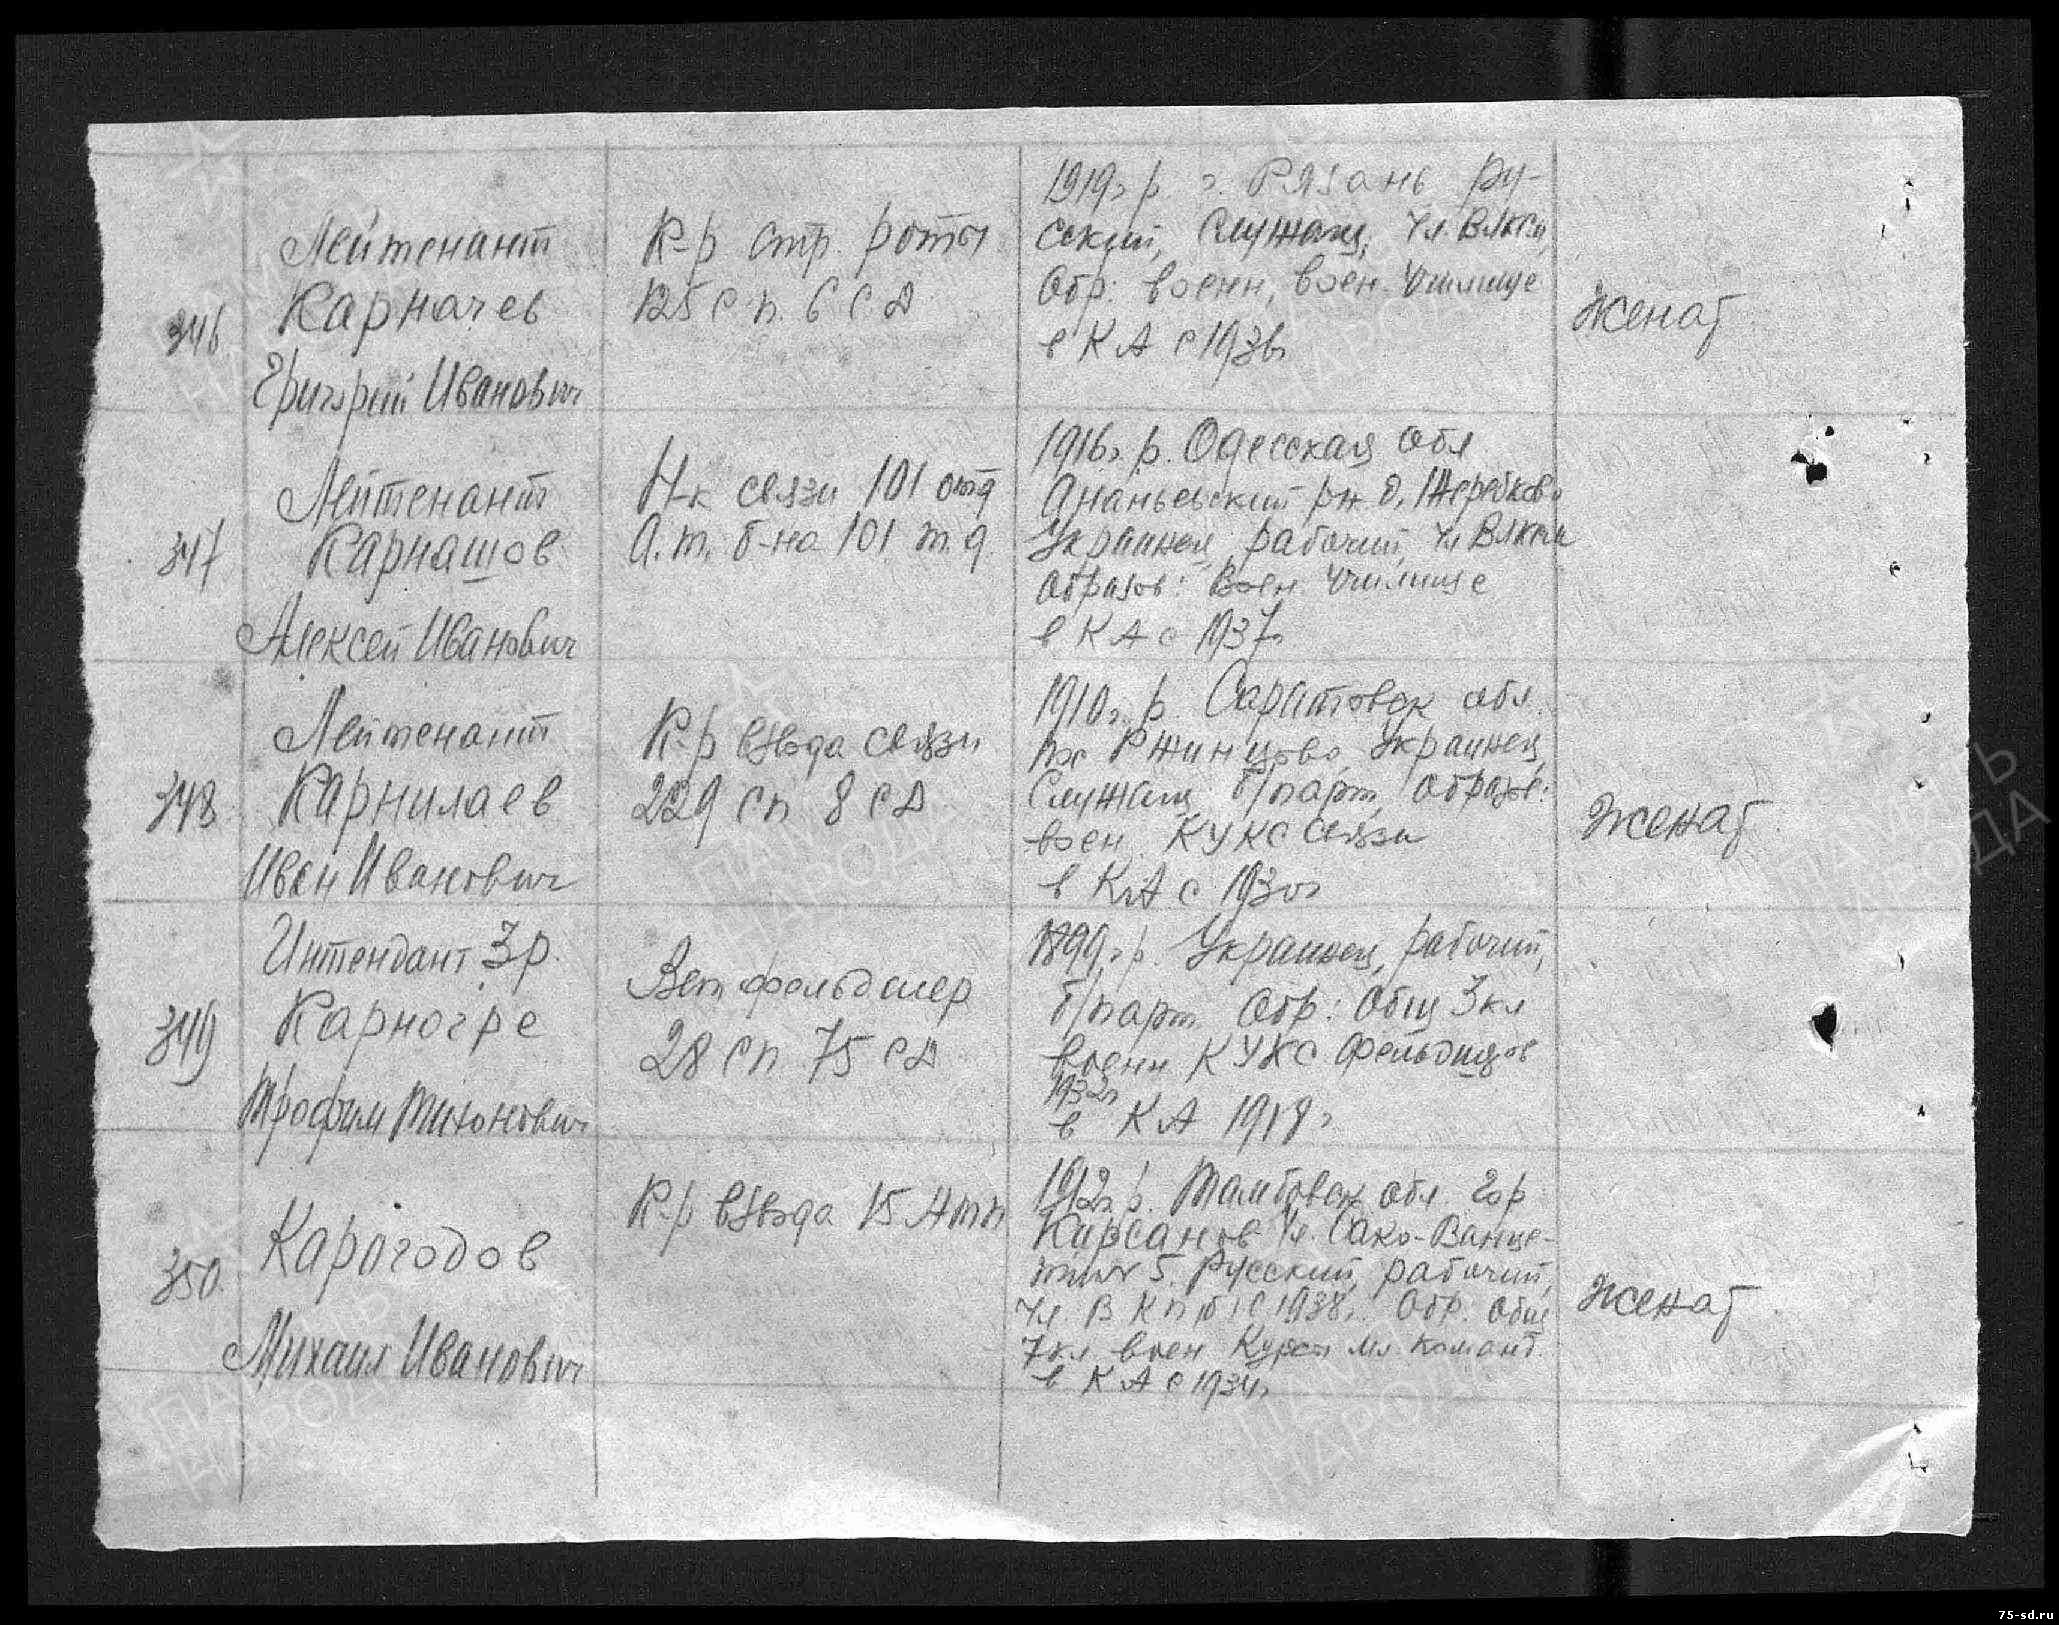 346
Лейтенант
Карначев
Григорий Иванович
К-р стр. роты
125 сп. 6 СД
1919г р. г. Рязань Ру-
сский, Служащ, чл. ВЛКСМ,
Обр: военн, воен. училище
в КА с 1936г
Женат
347
Лейтенант
Карнашов
Алексей Иванович
Н-к связи 101 отд
А.т. б-на 101 т.д.
1916г. р. Одесская обл
Ананьевский рн д. Жеребково
Украинец, рабочий, чл ВЛКСМ
Образов: Воен. училище
в КА с 1937г
348
Лейтенант
Карнилаев
Иван Иванович
К-р взвода связи
229 сп 8 СД
1910г. р. Саратовск обл.
Украинец,
Служащ, б/парт, образов:
воен. КУКС связи
в КА с 1930г
Женат
349
Интендант 3 р.
Карногре
Трофим Тихонович
Вет фельдшер
28 сп 75 СД
1899г р. Украинец, рабочий,
б/парт Обр: Общ 3 кл
военн КУКС фельдшров
1932г
в КА 1918г
350.
Карогодов
Михаил Иванович
К-р взвода 15 Мтп
1912г р. Тамбовск обл. гор
Кирсанов ул. Сако-Ванце-
5. Русский, рабочий,
чл. ВКП(б) с 1938г. Обр: общ
7 кл воен Курсы мл. команд.
в КА с 1934г
Женат
ПАМЯТЬ
НАРОДА
75-sd.ru